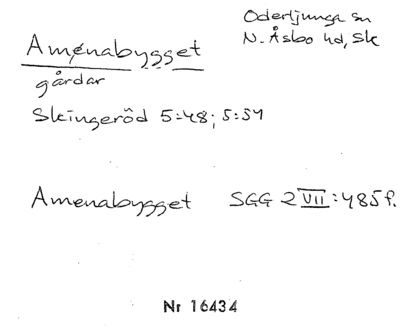 Oderljunga sn
N. Åsbo hd, Sk
Amenabygget
gårdar
Skingeröd 5:48; 5:51
Amenabygget SGG 2 VII:485f.
Nr 16434